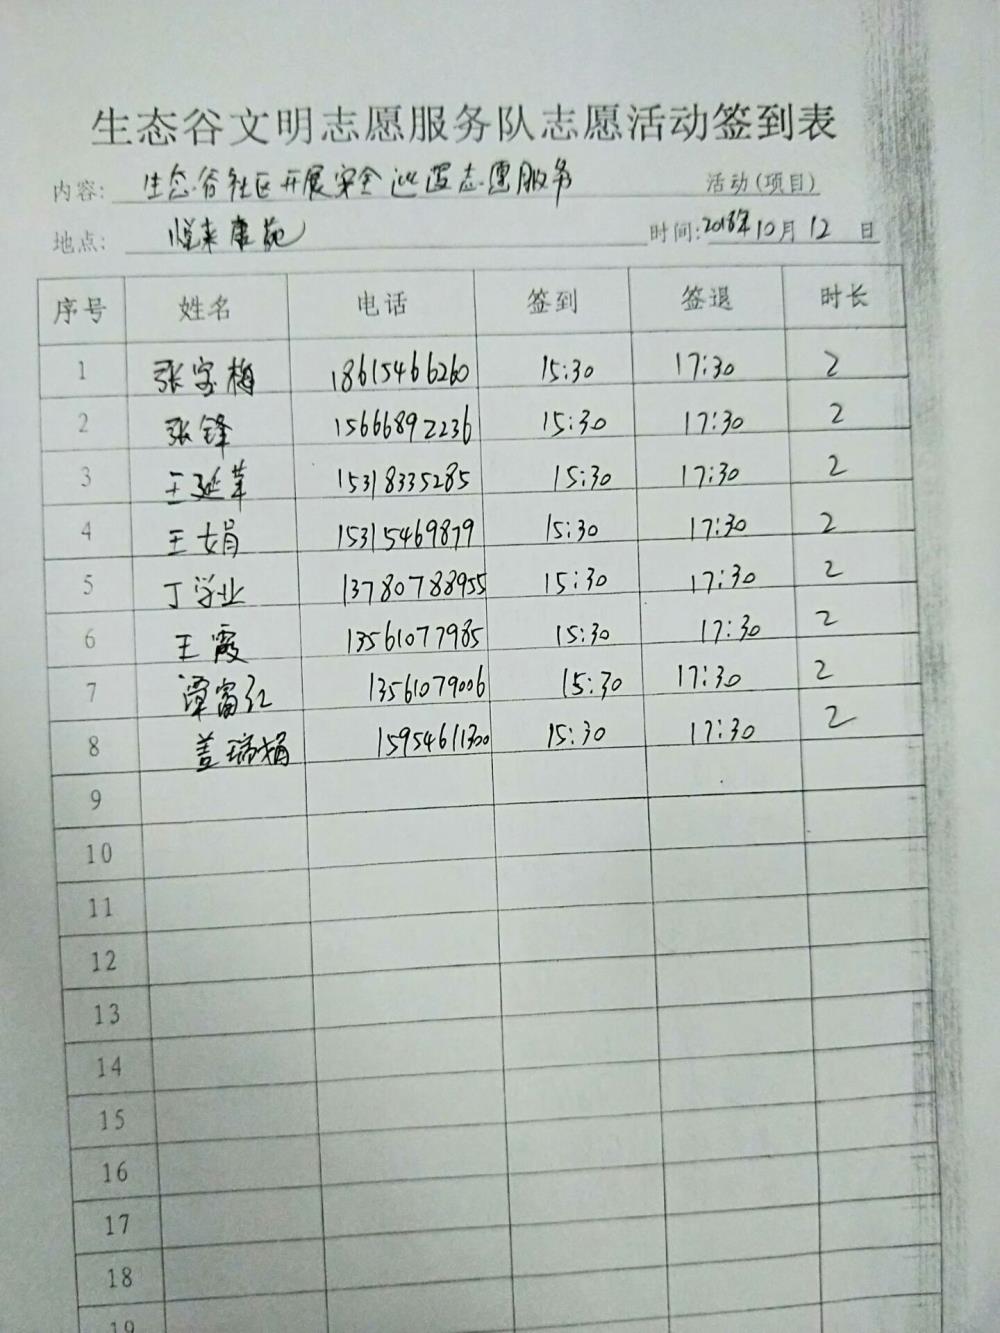 生态谷文明志愿服务队志愿活动签到表
内容: 生态谷社区开展安全巡逻志愿服务 活动(项目)
地点: 悦来康苑 时间: 2018年10月12日
序号 姓名 电话 签到 签退 时长
1 张宝梅 18615466260 15:30 17:30 2
2 张锋 15666892236 15:30 17:30 2
3 王延苹 15318335285 15:30 17:30 2
4 王娟 15315469879 15:30 17:30 2
5 丁学业 13780788955 15:30 17:30 2
6 王霞 13561077985 15:30 17:30 2
7 谭富红 13561079006 15:30 17:30 2
8 盖瑞娟 15954611300 15:30 17:30 2
9
10
11
12
13
14
15
16
17
18
19